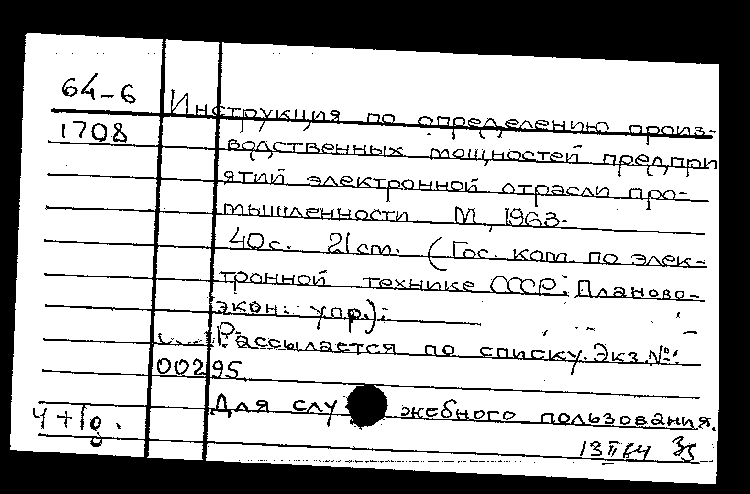 64-6
Инструкция по определению произ-
1708
водственных мощностей предпри
ятий электронной отрасли про-
мышленности М., 1963.
40с. 21см. (Гос. ком. по элек-
тронной технике СССР. Планово-
экон. упр.).
Рассылается по списку. Экз.№:
00295.
Для служебного пользования.
Ч+1д.
13 II 64